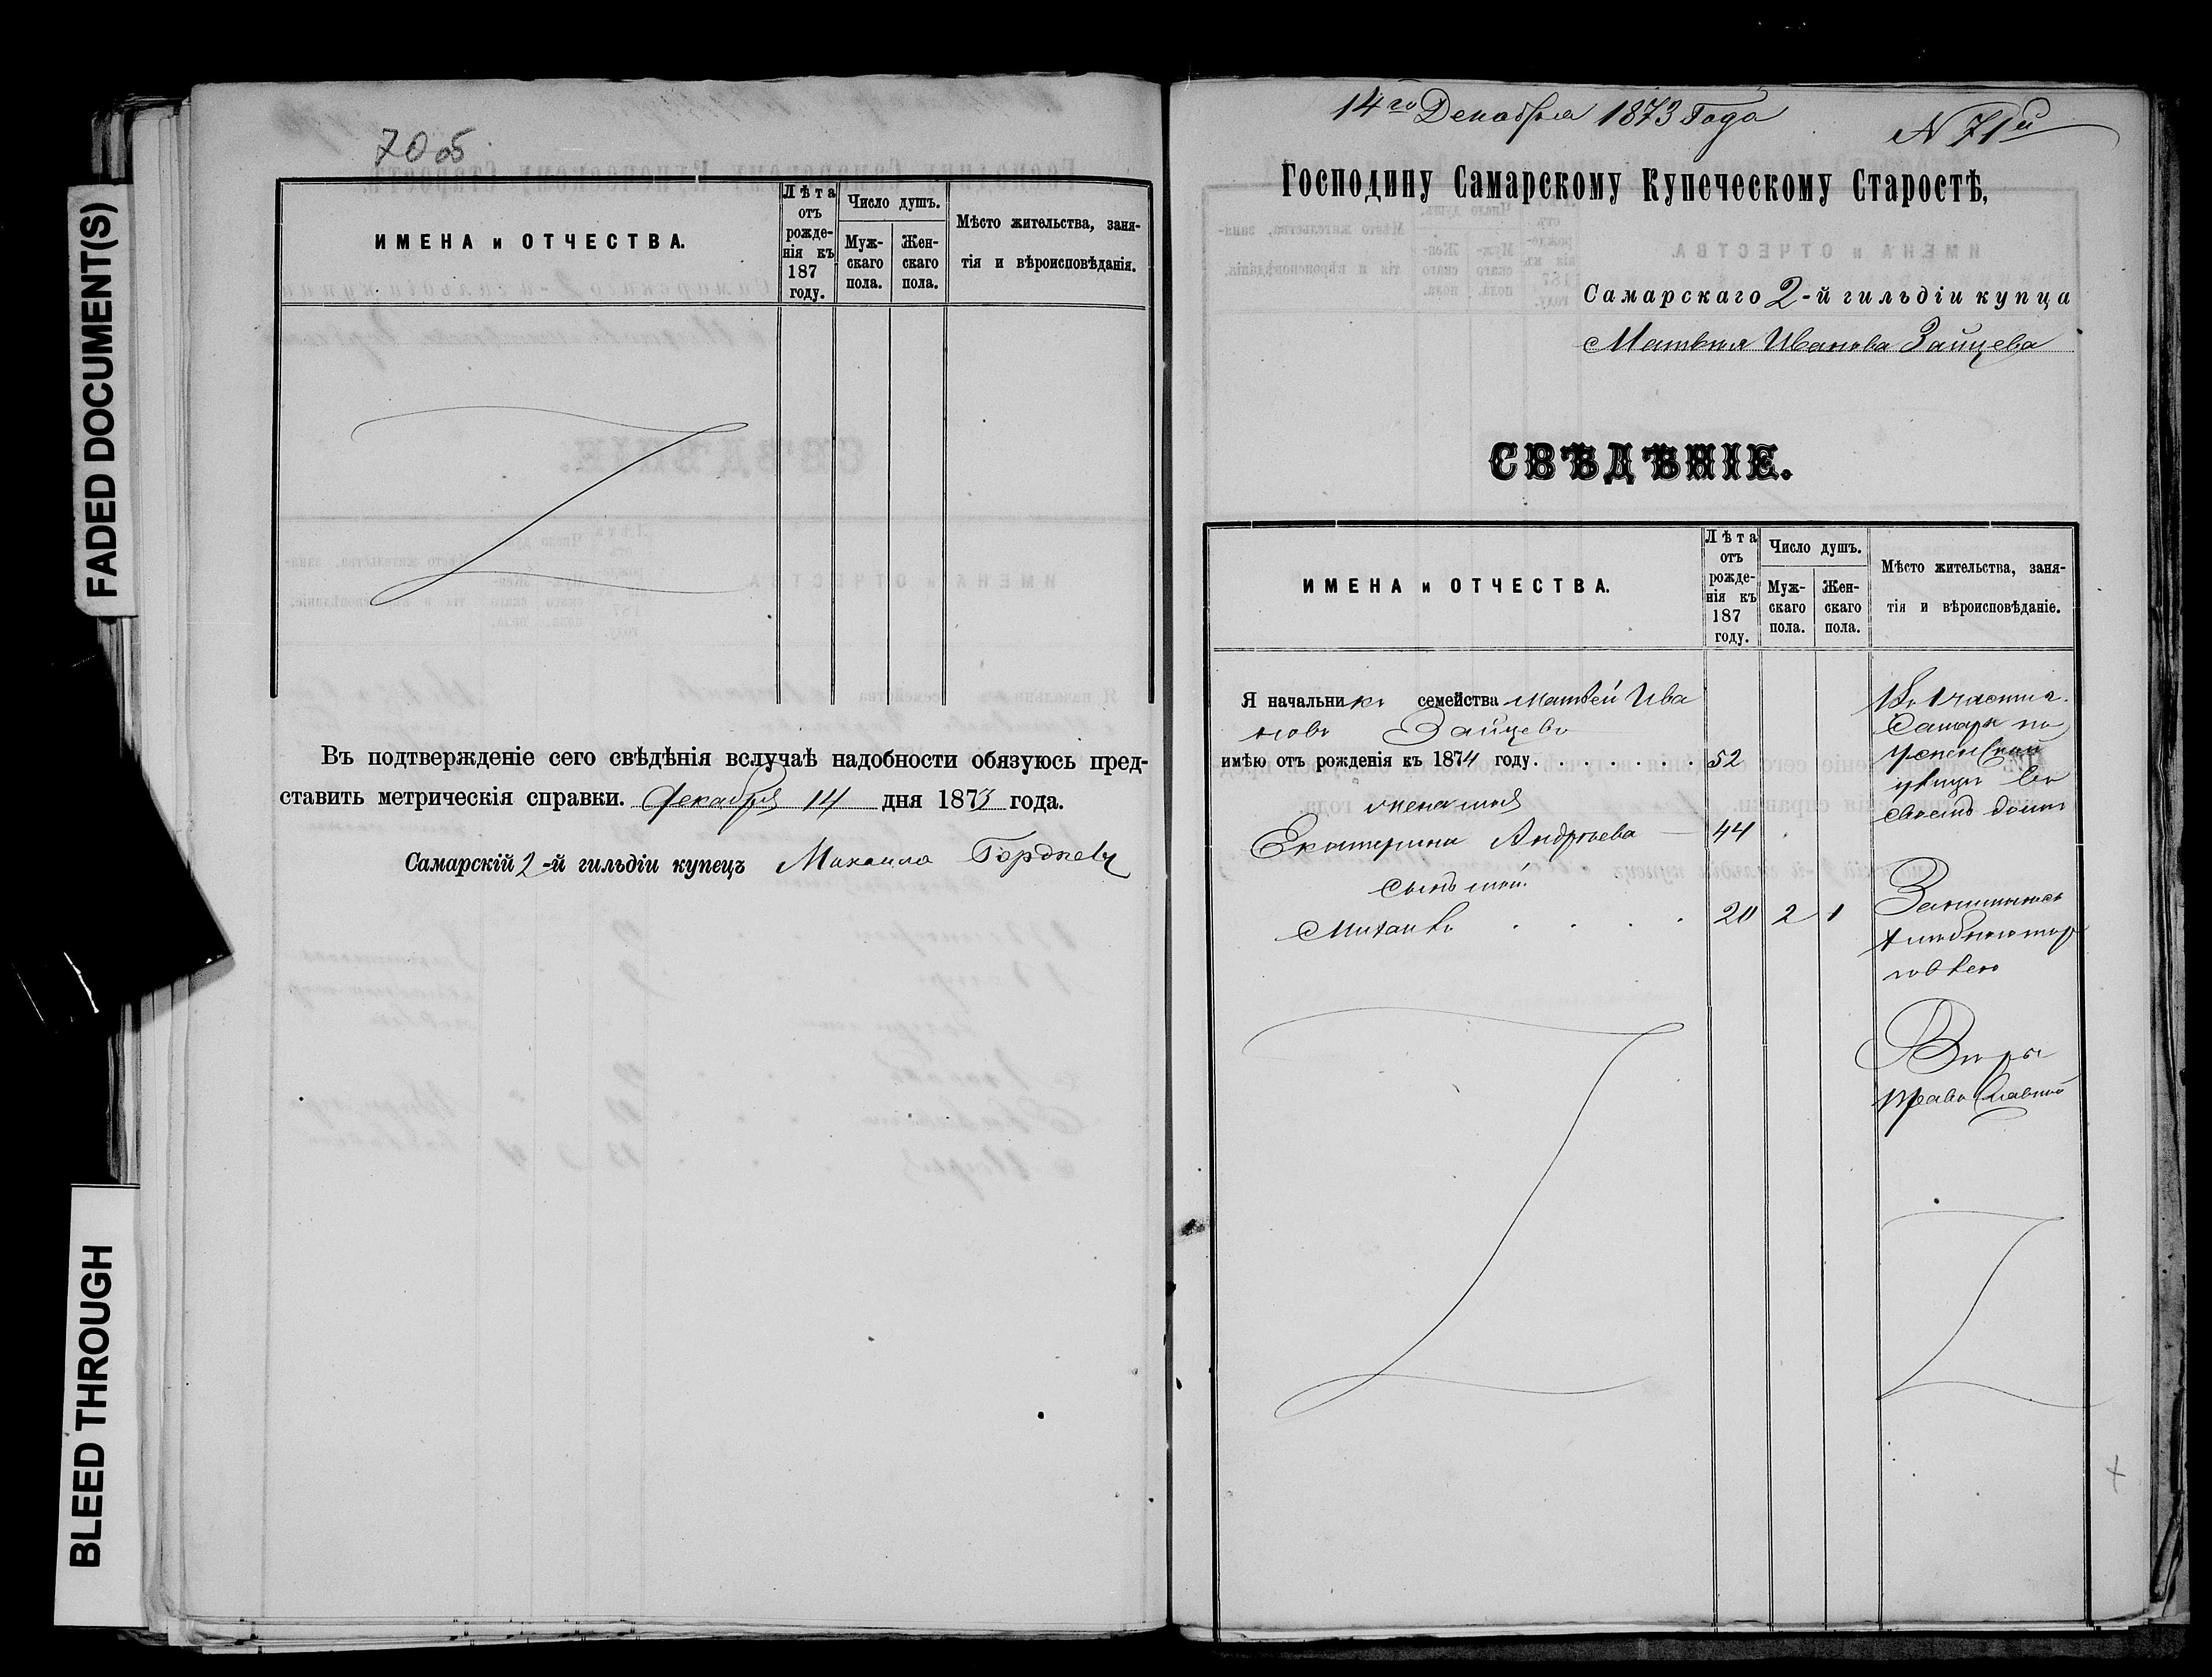 FADED DOCUMENT(S)
BLEED THROUGH
70 об
ИМЕНА и ОТЧЕСТВА.
Лѣта отъ рожденія къ 187 году.
Число душъ.
Мужскаго пола.
Женскаго пола.
Мѣсто жительства, занятія и вѣроисповѣданія.
Въ подтвержденіе сего свѣдѣнія вслучаѣ надобности обязуюсь пред-
ставить метрическія справки. Декабря 14 дня 1873 года.
Самарскій 2-й гильдіи купецъ Михаила Гордѣевъ
14го Декабря 1873 Года
N 71й
Господину Самарскому Купеческому Старостѣ,
Самарскаго 2-й гильдіи купца
Матвѣя Иванова Зайцева
СВѢДѢНІЕ.
ИМЕНА и ОТЧЕСТВА.
Лѣта отъ рожденія къ 187 году.
Число душъ.
Мужскаго пола.
Женскаго пола.
Мѣсто жительства, занятія и вѣроисповѣданіе.
Я начальникъ семейства Матвей Ива
новъ Зайцевъ
имѣю отъ рожденія къ 1874 году. . . . . . . . 52
жена моя
Екатерина Андрѣева 44
сынъ мой
Михаилъ . . . . 20 2 1
Въ 1 части г.
Самары по
Успенской
улицы въ
своемъ доми
Занимаюсь
хлебною тор
говлею
Вѣры
Православной